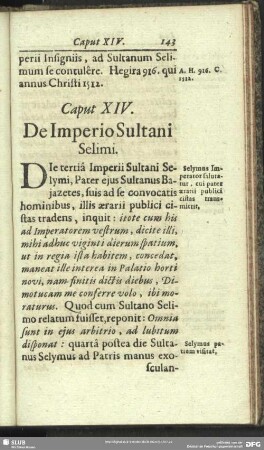 Caput XIV. 143
perii Insigniis, ad Sultanum Seli-
mum se contulêre. Hegira 926. qui
annus Christi 1512.
A. H. 926. C.
1512.
Caput XIV.
De Imperio Sultani
Selimi.
DIe tertiâ Imperii Sultani Se-
lymi, Pater ejus Sultanus Ba-
jazetes, suis ad se convocatis
hominibus, illis ærarii publici ci-
stas tradens, inquit: itote cum his
ad Imperatorem vestrum, dicite illi,
mihi adhuc viginti dierum spatium,
ut in regia ista habitem, concedat,
maneat ille interea in Palatio horti
novi, nam finitis dictis diebus, Di-
motucam me conferre volo, ibi mo-
raturus. Quod cum Sultano Seli-
mo relatum fuisset, reponit: Omnia
sunt in ejus arbitrio, ad lubitum
disponat: quartâ postea die Sulta-
nus Selymus ad Patris manus exo-
sculan-
Selymus Im-
perator saluta-
tur, cui pater
ærarii publici
cistas trans-
mittit,
Selymus pa-
trem visitat,
SLUB